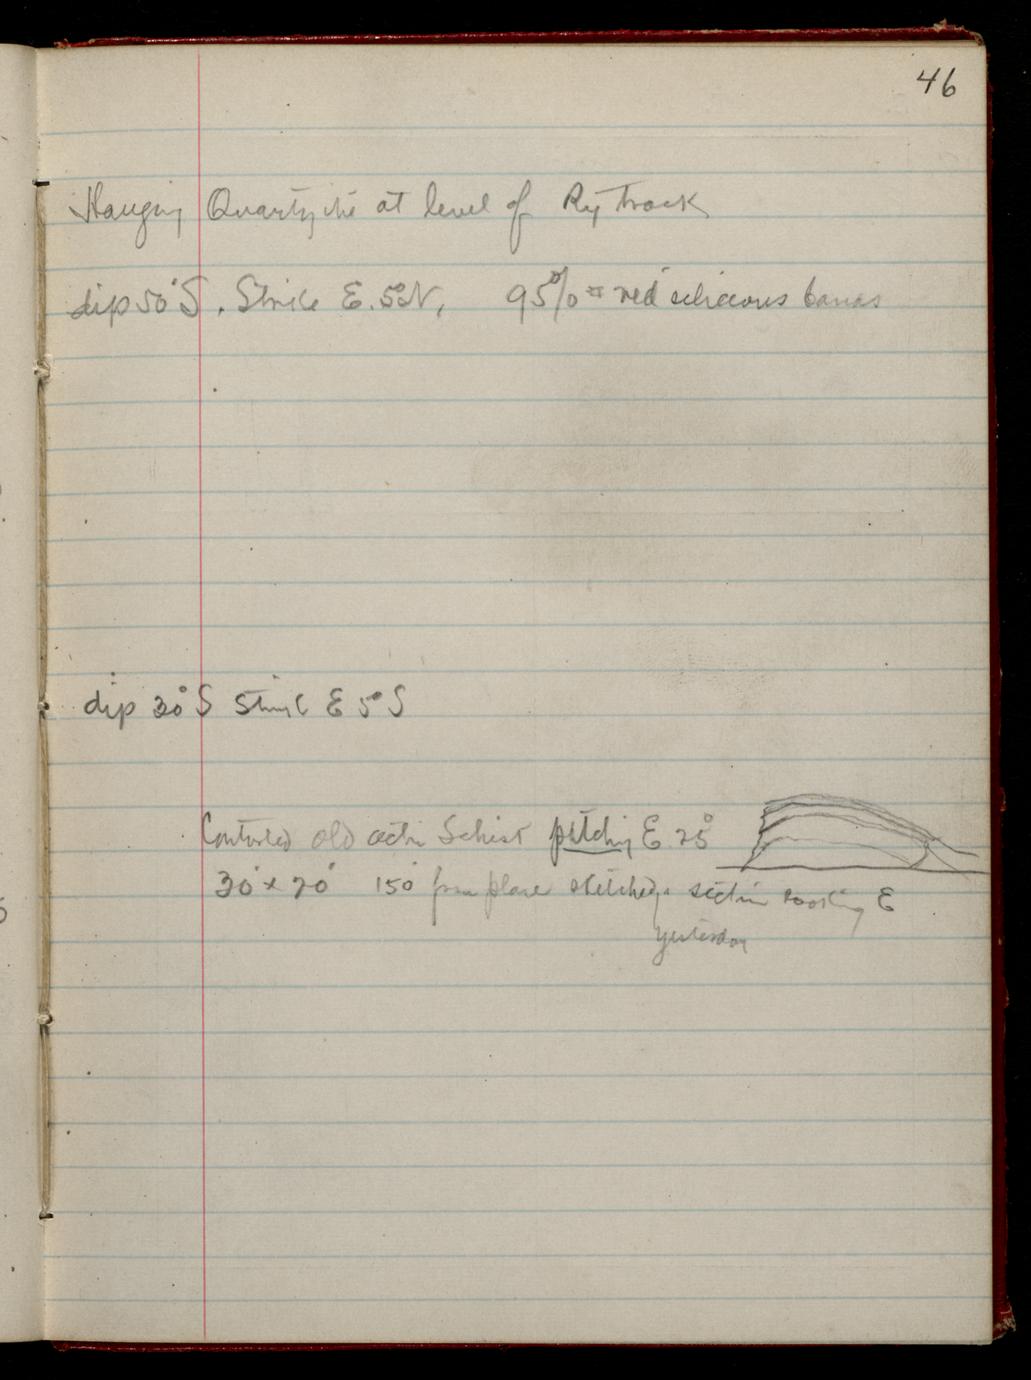 46
Hanging Quartzite at level of Ry Track
dip 50° S. Strike E. 5° N, 95% = red silicious bands
dip 30° S Strike E 5° S
Contorted old actin Schist pitching E 25°
30' x 20' 150' from place sketched section looking E
yesterday